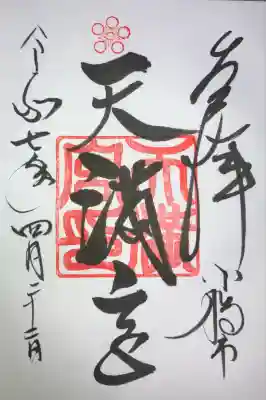 奉拝
小橋市
天満宮
令和七年四月二十二日